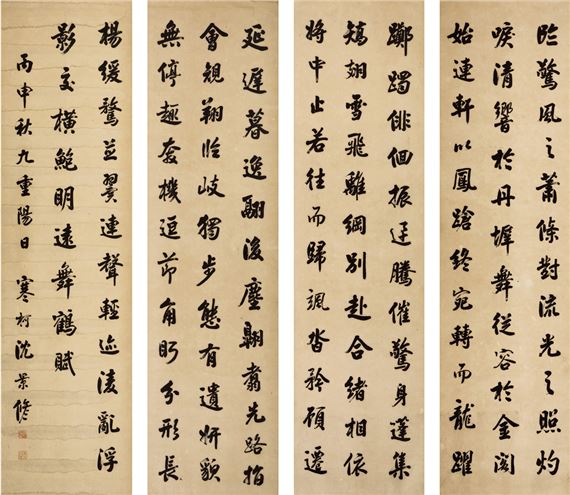 臨驚風之蕭條對流光之照灼
唳清響於丹墀舞從容於金閣
始連軒以鳳蹌終宛轉而龍躍
躑躅俳佪振迅騰催驚身蓬集
矯翅雪飛離綱別赴合緒相依
將中止若往而歸颯沓矜顧遷
延遲暮逸翮後塵翱翥先路指
會規翔臨岐獨步態有遺妍貌
無停趣奔機逗節角眄分形長
楊緩騖並翼連聲輕迹淩亂浮
影交橫鮑明遠舞鶴賦
丙申秋九重陽日 寒柯沈景脩